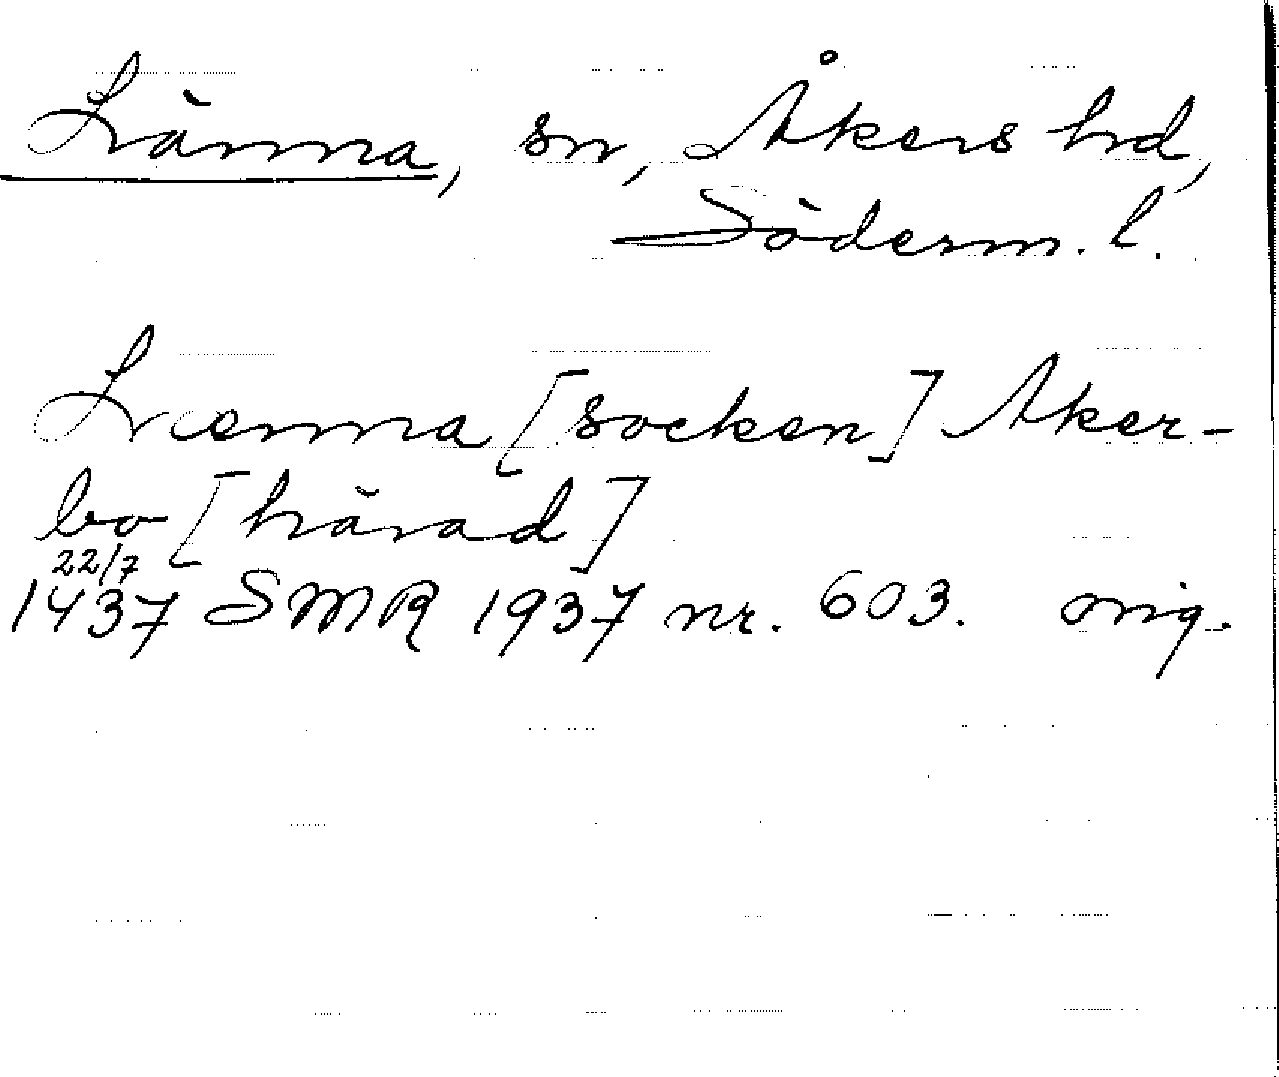 Länna, sn, Åkers hd,
Söderm. l.
Lænna [socken] Aker-
bo [härad]
22/7
1437 SMR 1937 nr. 603. orig.